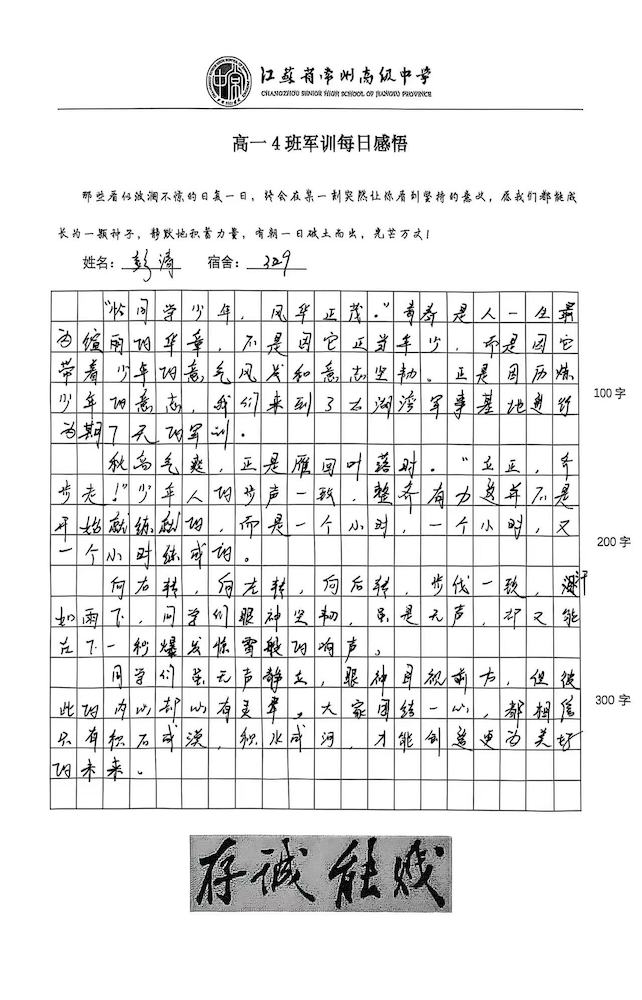 江苏省常州高级中学
CHANGZHOU SENIOR HIGH SCHOOL OF JIANGSU PROVINCE
高一4班军训每日感悟
那些看似波澜不惊的日复一日，终会在某一刻突然让你看到坚持的意义，愿我们都能成
长为一颗种子，静默地积蓄力量，有朝一日破土而出，光芒万丈！
姓名：彭涛 宿舍：329
“恰同学少年，风华正茂。”青春是人一生最
为绚丽的华章，不是因它正当年少，而是因它
带着少年的意气风发和意志坚韧。正是因历炼
少年的意志，我们来到了太湖湾军事基地进行
100字
为期7天的军训。
秋高气爽，正是雁回叶落时。“立正，齐
步走！”少年人的步声一致，整齐有力这并不是
开始就练就的，而是一个小时，一个小时，又
200字
一个小时练成的。
向右转，向左转，向后转，步伐一致，汗
如雨下，同学们眼神坚韧，虽是无声，却又能
在下一秒爆发惊雷般的响声。
同学们虽无声静立，眼神目视前方，但彼
此的内心却心有灵犀。大家团结一心，都相信
300字
只有积石成漠，积水成河，才能创造更为美好
的未来。
存诚能贱